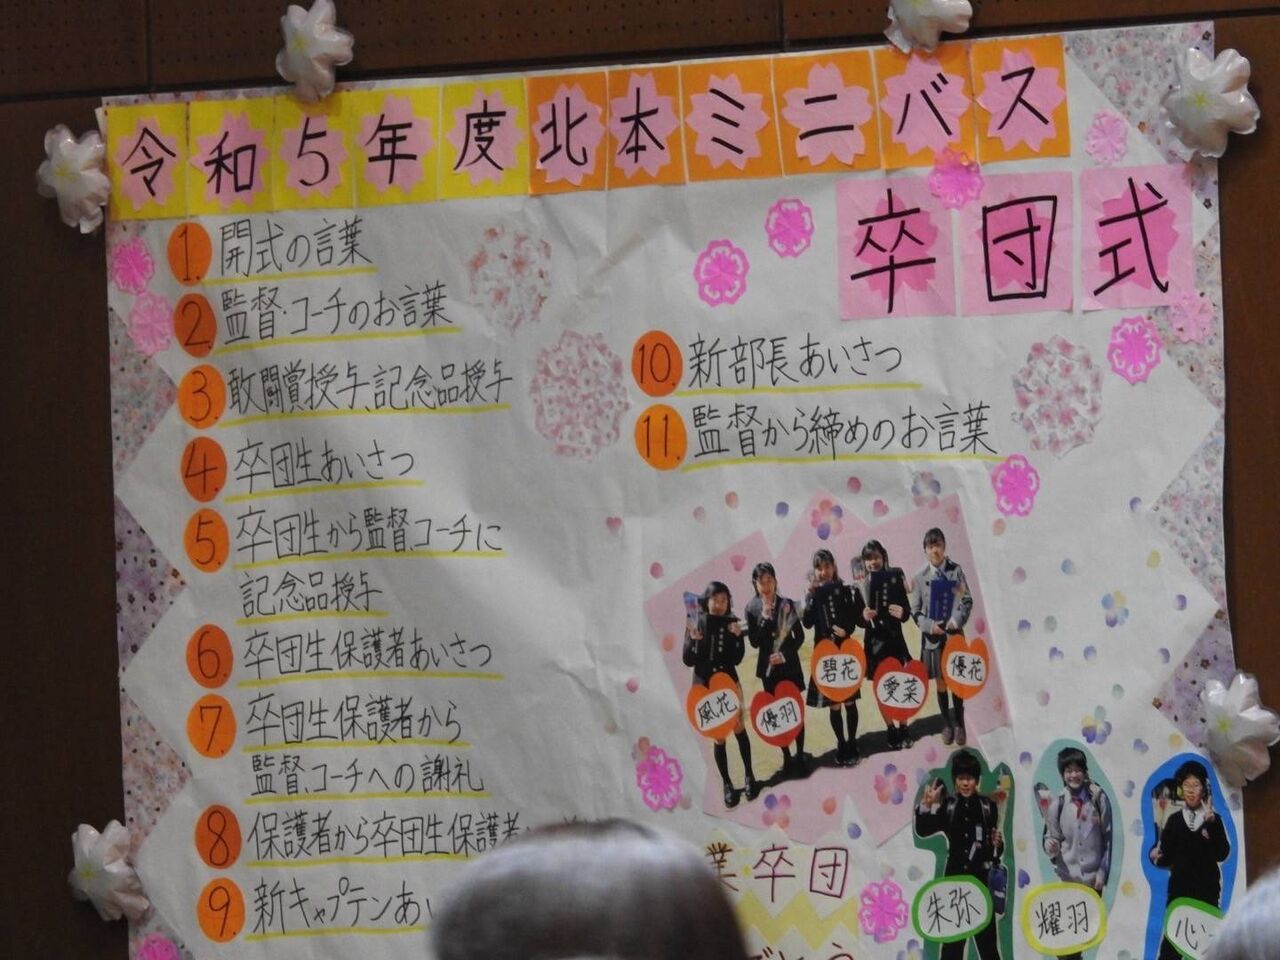 令和5年度北本ミニバス
卒団式
1. 開式の言葉
2. 監督・コーチのお言葉
3. 敢闘賞授与、記念品授与
4. 卒団生あいさつ
5. 卒団生から監督、コーチに
記念品授与
6. 卒団生保護者あいさつ
7. 卒団生保護者から
監督、コーチへの謝礼
8. 保護者から卒団生保護者
9. 新キャプテンあい
10. 新部長あいさつ
11. 監督から締めのお言葉
風花
優羽
碧花
愛菜
優花
業卒団
とう
朱弥
耀羽
心